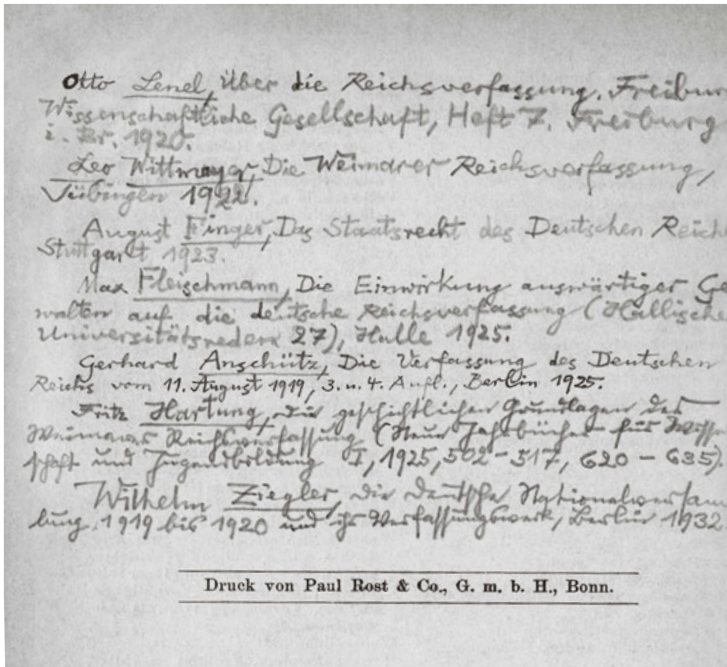 Otto Lenel, Über die Reichsverfassung, Freibur
Wissenschaftliche Gesellschaft, Heft 7. Freiburg
i. Br. 1920.
Leo Wittmayer, Die Weimarer Reichsverfassung,
Tübingen 1922.
August Finger, Das Staatsrecht des Deutschen Reich
Stuttgart 1923.
Max Fleischmann, Die Einwirkung auswärtiger Ge
walten auf die deutsche Reichsverfassung (Hallische
Universitätsreden 27), Halle 1925.
Gerhard Anschütz, Die Verfassung des Deutschen
Reichs vom 11. August 1919, 3. u. 4. Aufl., Berlin 1925.
Fritz Hartung, Die geschichtlichen Grundlagen der
Weimarer Reichsverfassung (Neue Jahrbücher für Wissen
schaft und Jugendbildung I, 1925, 502-517, 620-635)
Wilhelm Ziegler, Die deutsche Nationalversam
lung 1919 bis 1920 und ihr Verfassungswerk, Berlin 1932
Druck von Paul Rost & Co., G. m. b. H., Bonn.